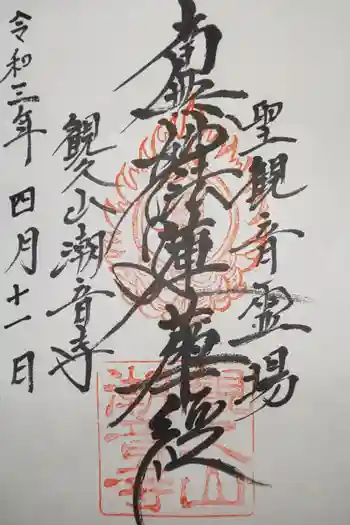 聖観音霊場
南無妙法蓮華経
観久山潮音寺
令和三年四月十一日